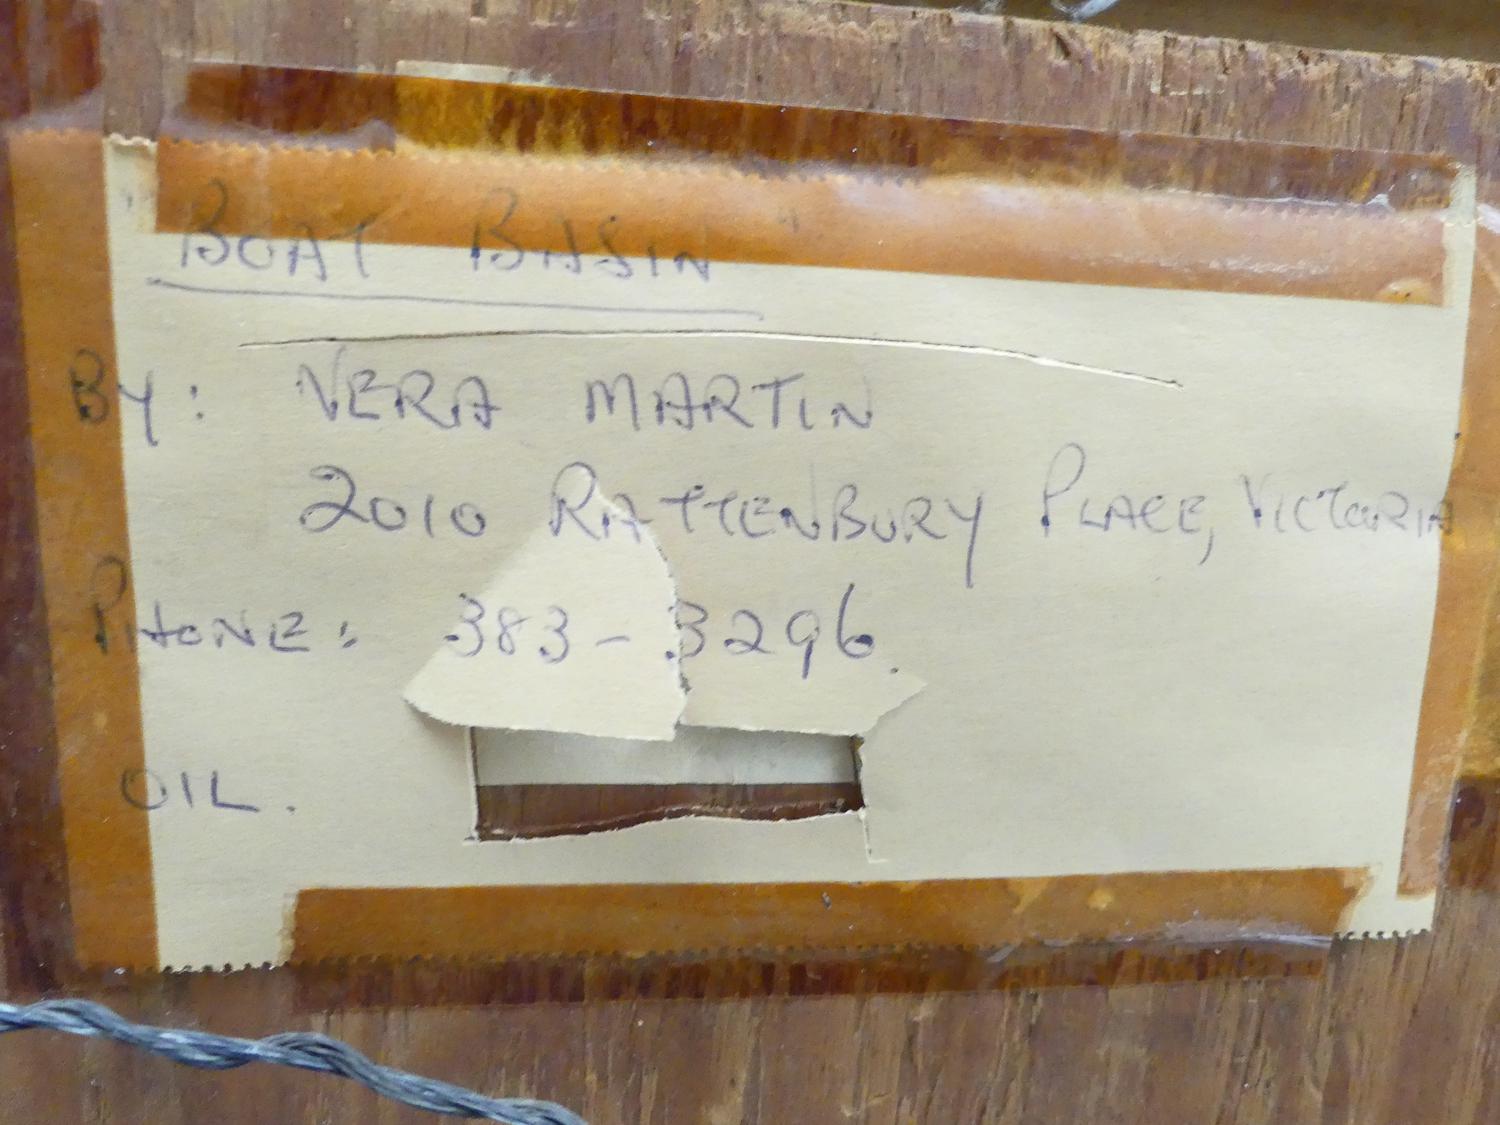 "BOAT BASIN"
BY: VERA MARTIN
2010 RATTENBURY PLACE, VICTORIA
PHONE: 383-3296.
OIL.